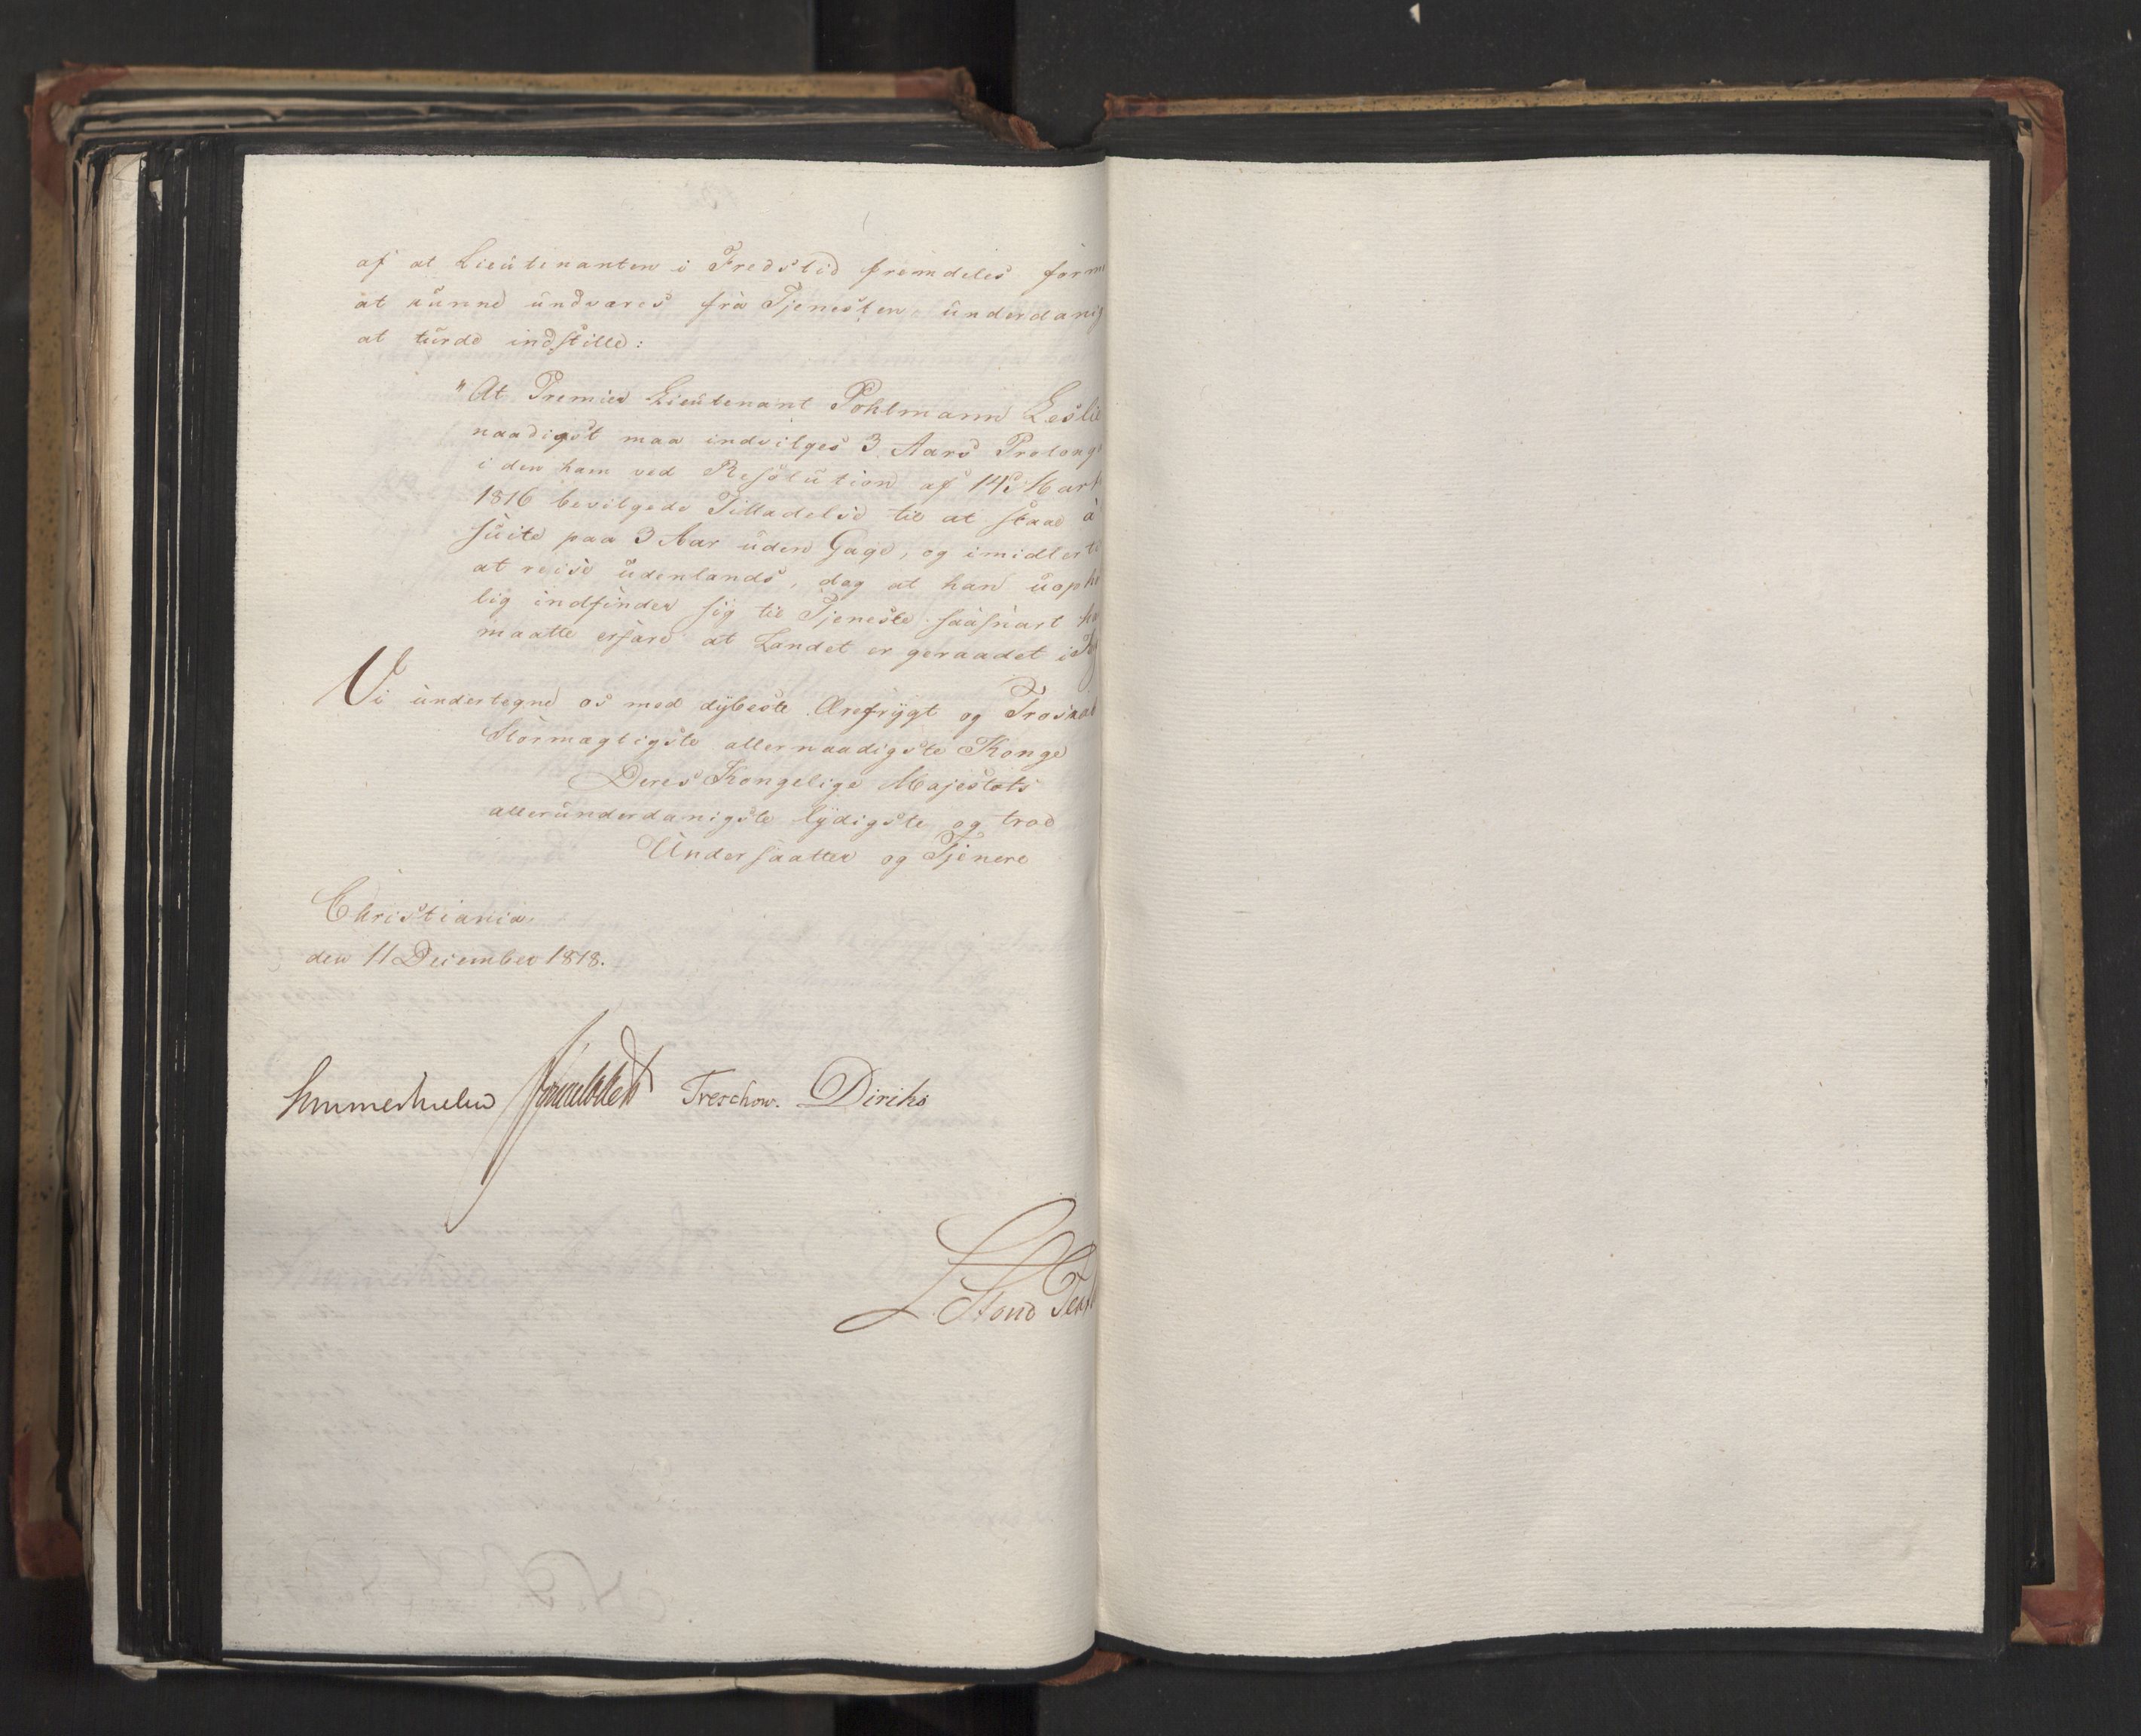 af at Lieutenanten i Fredstid fremdeles form
at kunne undværes fra Tjenesten underdanig
at turde indstille:
"At Premier Lieutenant Pohlmann Leslie
naadigst maa indvilges 3 Aars Prolong
i den ham ved Resolution af 14d Mart
1816 bevilgede Tilladelse til at staae à
suite paa 3 Aar uden Gage, og imidlerti
at reise udenlands, dog at han uoph
lig indfinder sig til Tjeneste saasnart ha
maatte erfare at Landet er geraadet i
Vi undertegne os med dybeste Ærefrygt og Troskab
Stormægtigste allernaadigste Konge
Deres Kongelige Majestæts
allerunderdanigste lydigste og troe
Undersaatter og Tjenere
Christiania
den 11 December 1818.
Sommerhielm Treschow. Diriks
L. Stoud